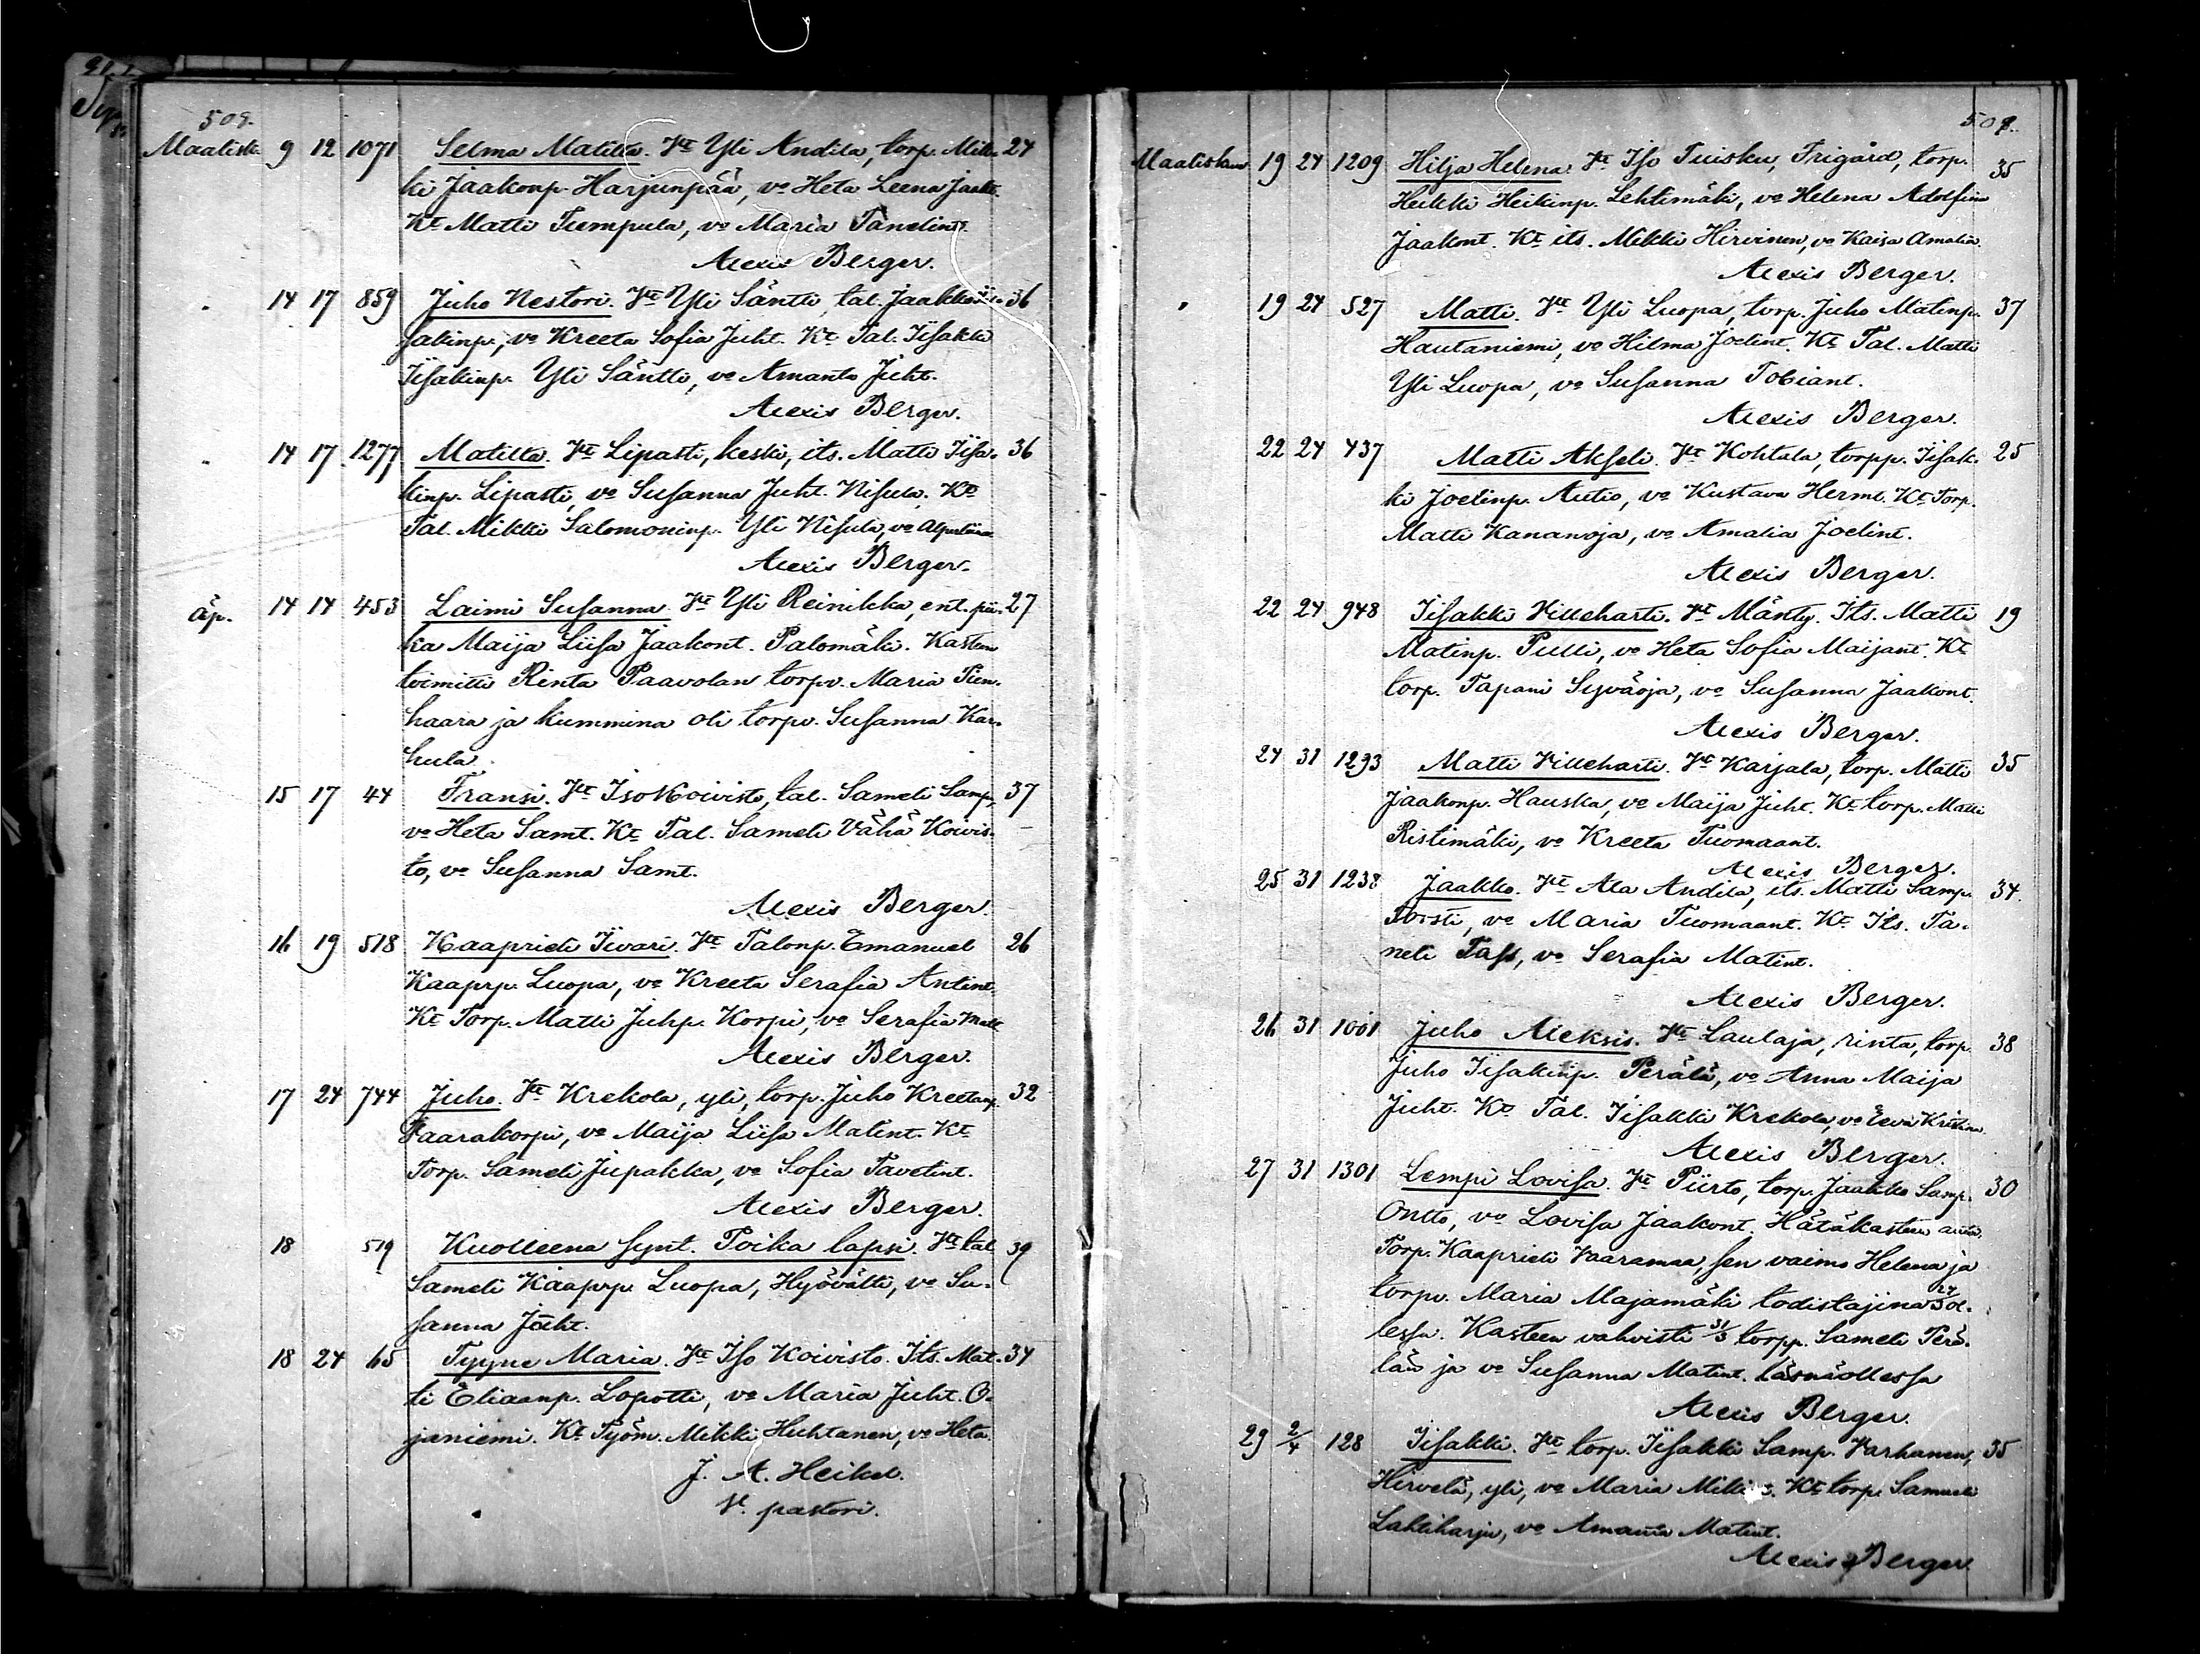 509.
Maalisk. 9 12 1071 Selma Matilta. Vt Yli Andila, torp. Mik- 24
ki Jaakonp. Harjunpää, vo Heta Leena Jaakt.
Kt Matti Tumpula, vo Maria Tanelint.
Alexis Berger.
14 17 859 Juho Nestori. Vt Yli Säntti, tal. Jaakko Ii- 36
sakinp., vo Kreeta Sofia Juht. Kt Tal. Iisakki
Iisakinp. Yli Säntti, vo Amanta Juht.
Alexis Berger.
14 17 1277 Matilta. Vt Lipasti, keski, its. Matti Iisa- 36
kinp. Lipasti, vo Susanna Juht. Nisula. Kt
Tal. Mikki Salomoninp. Yli Nisula, vo
Alexis Berger.
äp. 14 14 453 Laimi Susanna. Vt Yli Reinikka, ent. pii- 27
ka Maija Liisa Jaakont. Palomäki. Kasteen
toimitti Rinta Paavolan torpv. Maria Pien-
haara ja kummina oli torpv. Susanna Kar-
hula.
15 17 44 Fransi. Vt Iso Koivisto, tal. Sameli Samp., 37
vo Heta Samt. Kt Tal. Sameli Vähä Koivis-
to, vo Susanna Samt.
Alexis Berger.
16 19 518 Kaaprieli Iivari. Vt Talonp. Emanuel 26
Kaaprp. Luopa, vo Kreeta Serafia Antint.
Kt Torp. Matti Juhp. Korpi, vo Serafia Matt.
Alexis Berger.
17 24 744 Juho. Vt Krekola, yli, torp. Juho Kreetanp. 32
Vaarakorpi, vo Maija Liisa Matint. Kt
Torp. Sameli Jupakka, vo Sofia Tavetint.
Alexis Berger.
18 519 Kuolleena synt. Poika lapsi. Vt tal. 39
Sameli Kaaprp. Luopa, Hyövälti, vo Su-
sanna Jäht.
18 24 65 Tyyne Maria. Vt Iso Koivisto. Its. Mat- 34
ti Eliaanp. Lopotti, vo Maria Juht. O-
janiemi. Kt Työm. Mikki Huhtanen, vo Heta.
J. A. Heikel.
V. pastori.
509.
Maaliskuu 19 24 1209 Hilja Helena. Vt Iso Tuisku, Frigård, torp. 35
Heikki Heikinp. Lehtimäki, vo Helena Adolfina
Jaakont. Kt its. Mikki Hirvinen, vo Kaisa Amalia.
Alexis Berger.
19 24 527 Matti. Vt Yli Luopa, torp. Juho Matinp. 37
Hautaniemi, vo Hilma Joelint. Kt Tal. Matti
Yli Luopa, vo Susanna Tobiant.
Alexis Berger.
22 24 437 Matti Akseli. Vt Kohtala, torpp. Iisak- 25
ki Joelinp. Autio, vo Kustava Hermt. Kt Torp.
Matti Kananoja, vo Amalia Joelint.
Alexis Berger.
22 24 948 Iisakki Villeharti. Vt Mänty. Its. Matti 19
Matinp. Pulli, vo Heta Sofia Maijant. Kt
torp. Tapani Syväoja, vo Susanna Jaakont.
Alexis Berger.
24 31 1293 Matti Villeharti. Vt Karjala, torp. Matti 35
Jaakonp. Hauska, vo Maija Juht. Kt torp. Matti
Ristimäki, vo Kreeta Tuomaant.
Alexis Berger.
25 31 1238 Jaakko. Vt Ala Andila, its. Matti Samp. 34.
Torsti, vo Maria Tuomaant. Kt Its. Ta-
neli Tass, vo Serafia Matint.
Alexis Berger.
26 31 1001 Juho Aleksis. Vt Laulaja, rinta, torp. 38
Juho Iisakinp. Perälä, vo Anna Maija
Juht. Kt Tal. Iisakki Krekola, vo Eeva Kristina.
Alexis Berger.
27 31 1301 Lempi Lovisa. Vt Piirto, torp. Jaakko Samp. 30
Ontto, vo Lovisa Jaakont. Hätäkasteen antoi
Torp. Kaaprieli Vaaramaa, sen vaimo Helena ja
torpv. Maria Majamäki todistajina 27/3 ol-
lessa. Kasteen vahvisti 31/3 torpp. Sameli Perä-
län ja vo Susanna Matint. läsnäollessa
Alexis Berger.
29 2/4 128 Iisakki. Vt torp. Iisakki Samp. Varhanen, 35
Hirvelä, yli, vo Maria Kt torp. Sameli
Lahtiharju, vo Amanta Matint.
Alexis Berger.